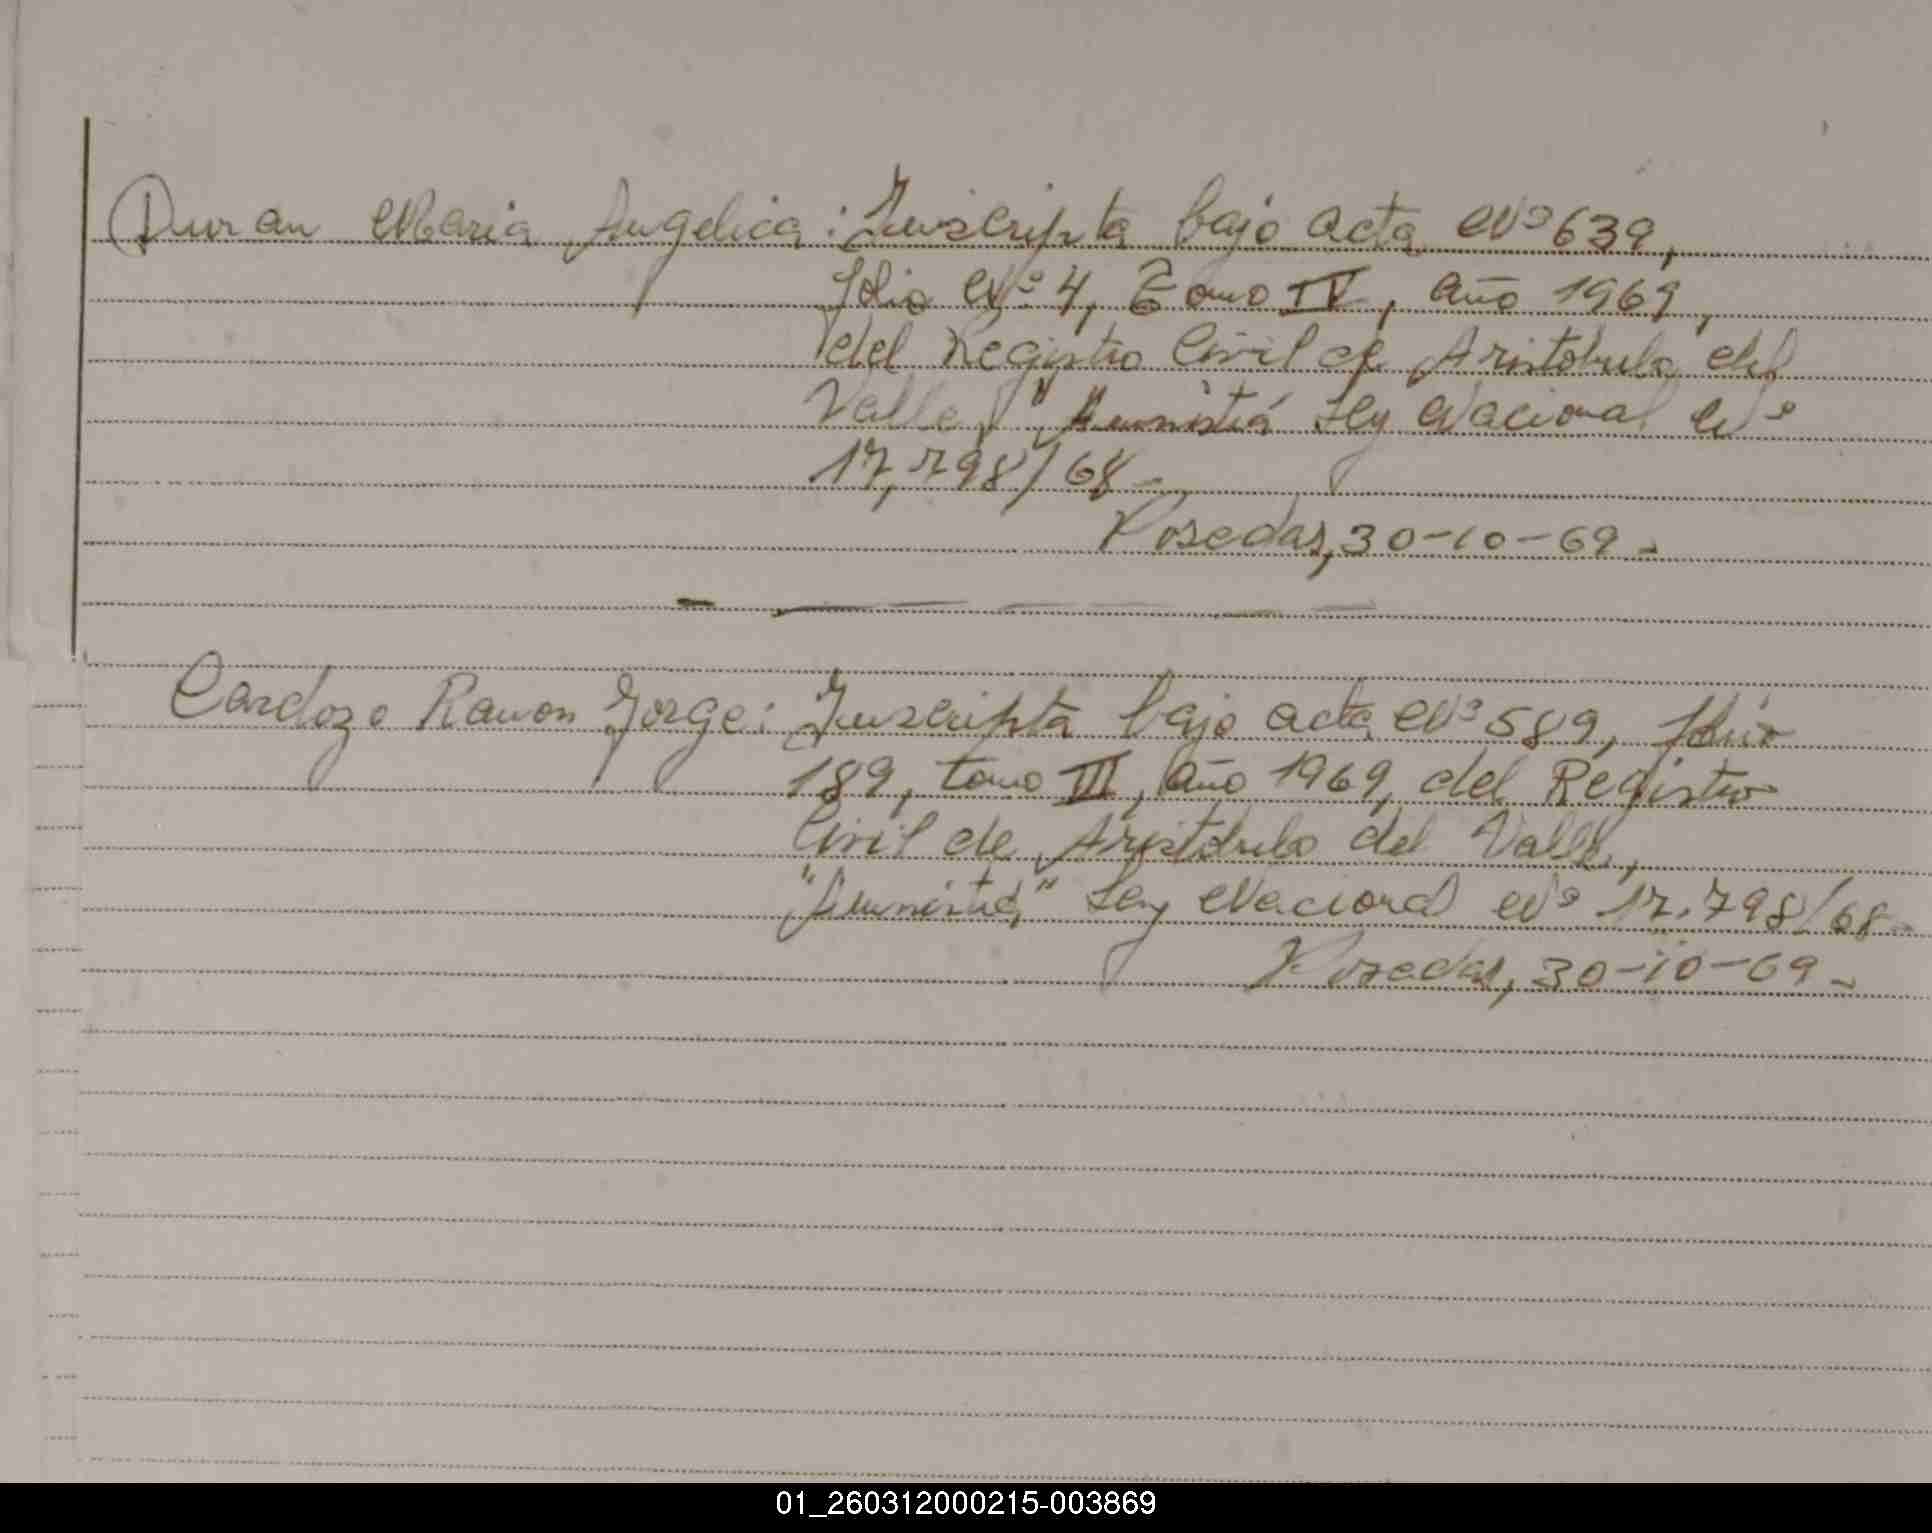 Duran Maria Angelica: Inscripta bajo acta Nº 639,
folio Nº 4, Tomo IV, año 1969,
del Registro Civil de Aristobulo del
Valle, "Amnistia" Ley Nacional Nº
17,798/68-
Posadas, 30-10-69-
Cardozo Ramon Jorge: Inscripta bajo acta Nº 589, folio
189, tomo III, año 1969, del Registro
Civil de Aristobulo del Valle,
"Amnistia" Ley Nacional Nº 17.798/68-
Posadas, 30-10-69-
01_260312000215-003869